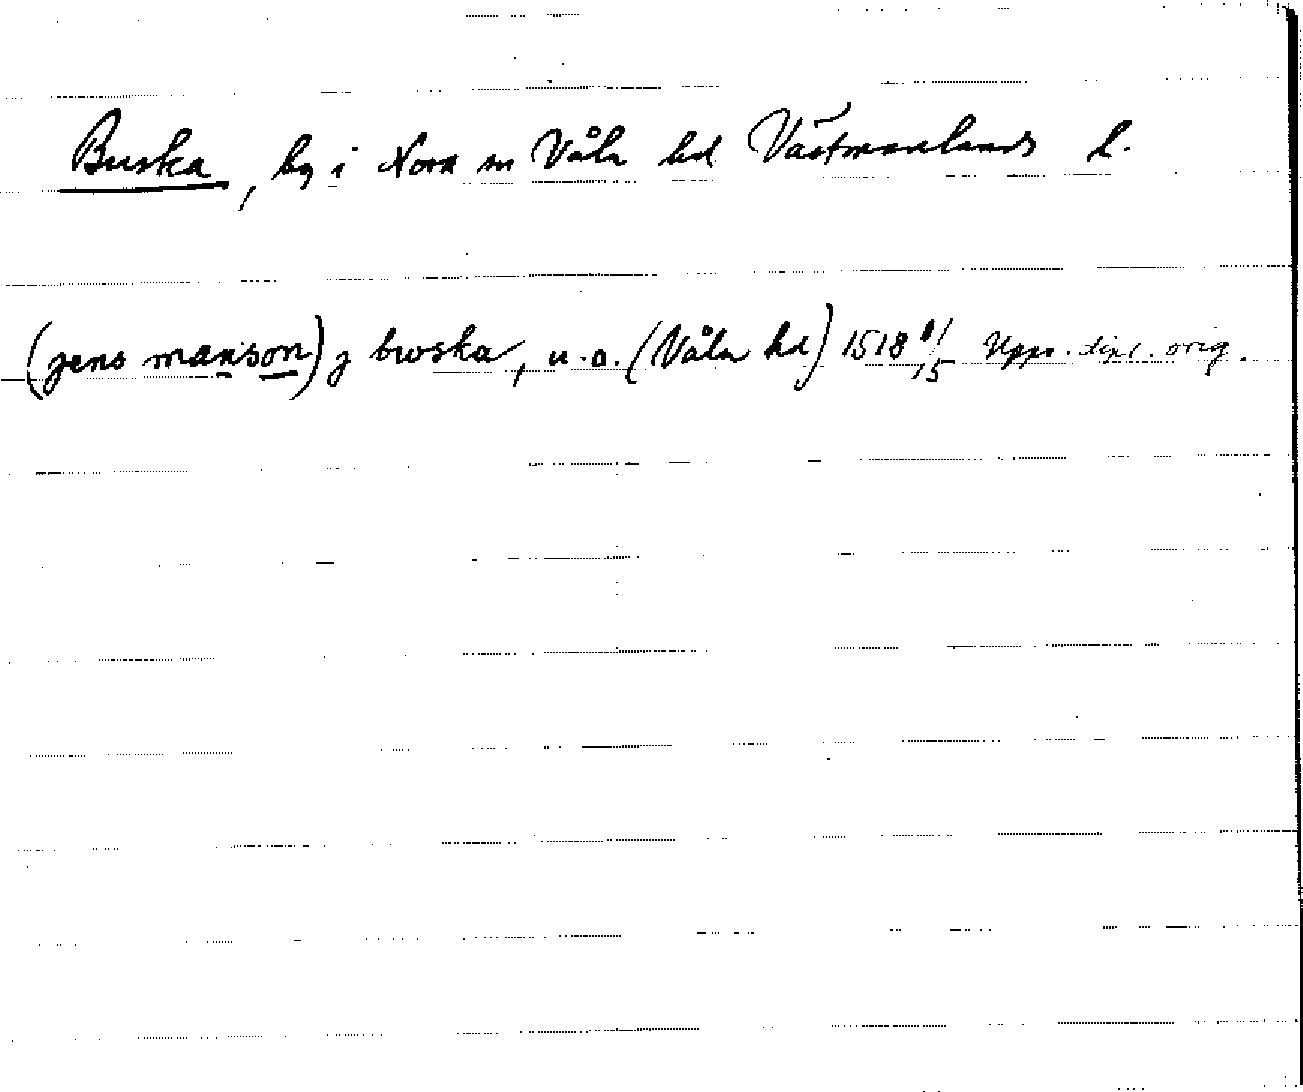 Buska, by i Nora sn Våla hd Västmanlands l.
(jens manson) j bwska, u.a. (Våla hd) 1518 /5 Upps. dipl. orig.